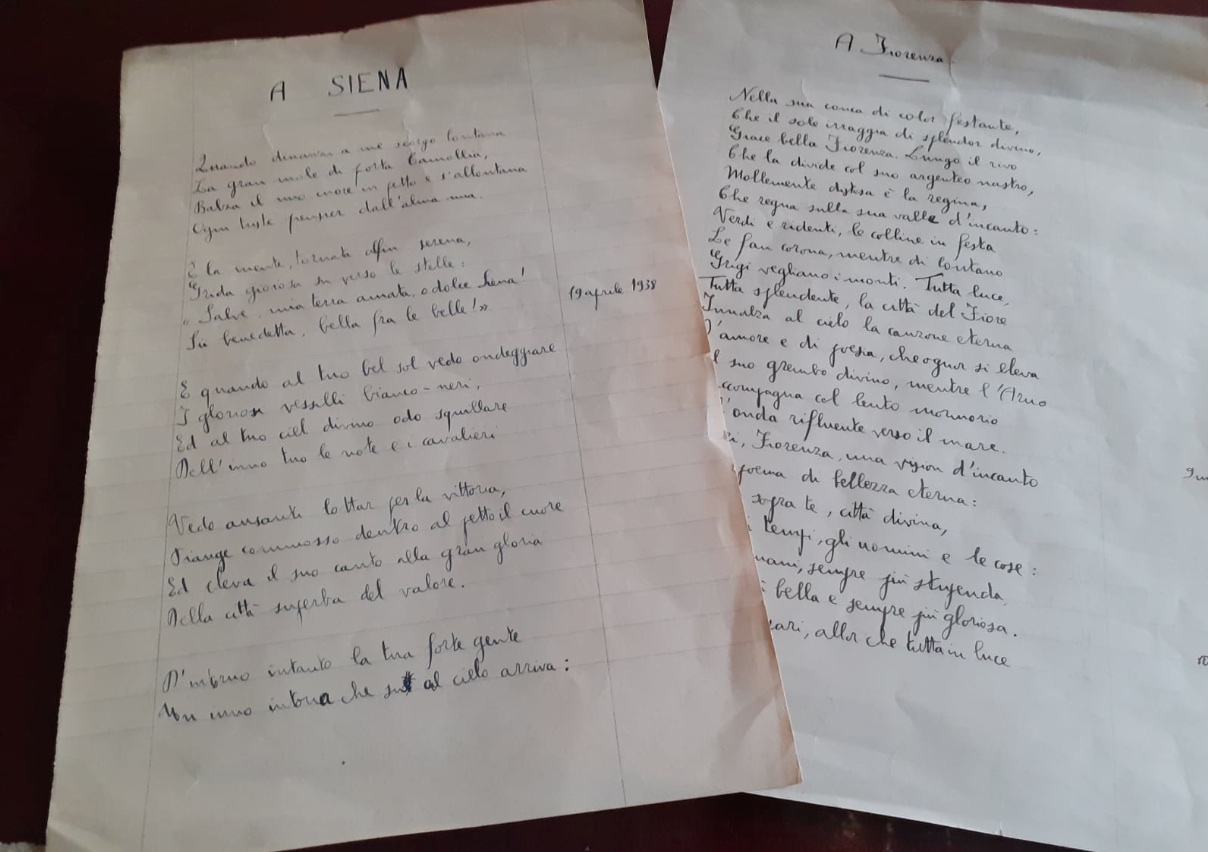 A SIENA
Quando dinanzi a me scorgo lontana
La gran mole di Porta Camollia,
Balza il mio cuore in petto e s'allontana
Ogni triste pensier dall'alma mia.
E la mente, tornata alfin serena,
Grida gioiosa su verso le stelle:
"Salve, mia terra amata, o dolce Siena!
Sii benedetta, bella fra le belle!»
19 aprile 1938
E quando al tuo bel sol vedo ondeggiare
I gloriosi vessilli bianco-neri,
Ed al tuo ciel divino odo squillare
Dell'inno tuo le note e i cavalieri
Vedo ansanti lottar per la vittoria,
Piange commosso dentro al petto il cuore
Ed eleva il suo canto alla gran gloria
Della città superba del valore.
D'intorno intanto la tua forte gente
Un inno intona che su al cielo arriva:
A Fiorenza
Nella sua conca di color festante,
Che il sole irraggia di splendor divino,
Giace bella Fiorenza. Lungo il rivo
Che la divide col suo argenteo nastro,
Mollemente distesa è la regina,
Che regna sulla sua valle d'incanto:
Verdi e ridenti, le colline in festa
Le fan corona, mentre di lontano
Grigi vegliano i monti. Tutta luce,
Tutta splendente, la città del Fiore
Innalza al cielo la canzone eterna
D'amore e di poesia, che ognor si eleva
l suo grembo divino, mentre l'Arno
ccompagna col lento mormorio
l'onda rifluente verso il mare.
ei, Fiorenza, una vision d'incanto
poema di bellezza eterna:
sopra te, città divina,
i tempi, gli uomini e le cose:
mani, sempre più stupenda,
bella e sempre più gloriosa.
ari, allor che tutta in luce